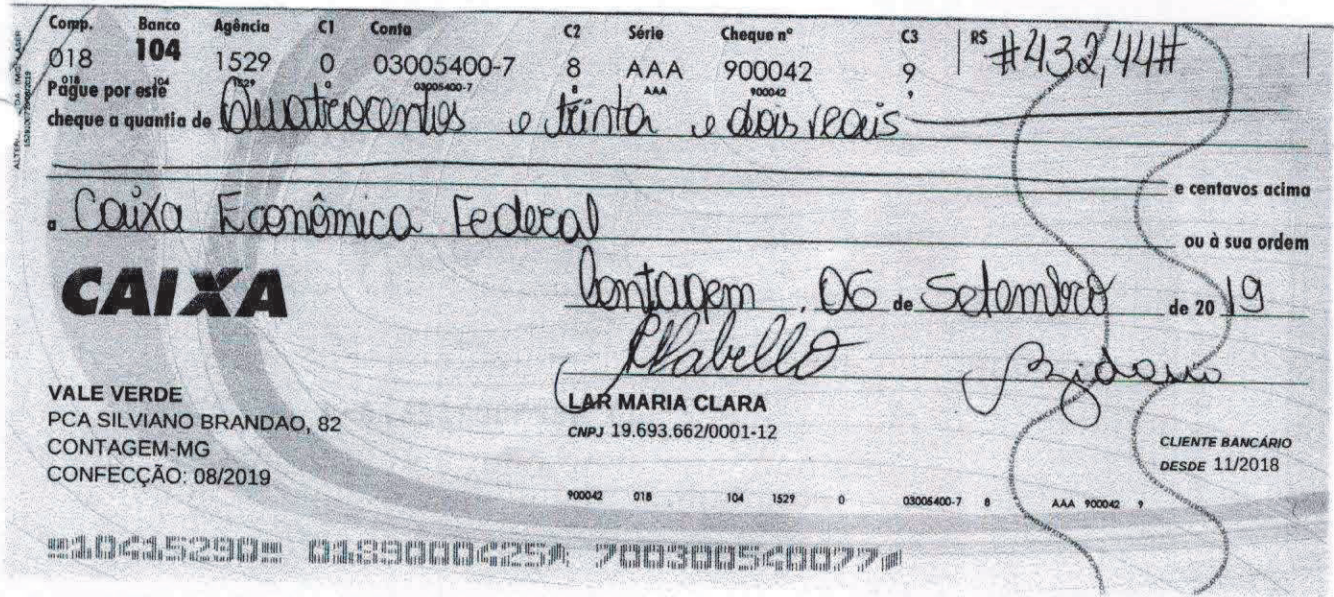 Comp. Banco Agência C1 Conta C2 Série Cheque nº C3 R$ #432,44#
018 104 1529 0 03005400-7 8 AAA 900042 9
018 104 1529 03005400-7 8 AAA 900042 9
Pague por este
cheque a quantia de Quatrocentos e trinta e dois reais
e centavos acima
a Caixa Econômica Federal
ou à sua ordem
CAIXA
Contagem, 06 de Setembro de 2019
VALE VERDE
PCA SILVIANO BRANDAO, 82
CONTAGEM-MG
CONFECÇÃO: 08/2019
LAR MARIA CLARA
CNPJ 19.693.662/0001-12
CLIENTE BANCÁRIO
DESDE 11/2018
900042 018 104 1529 0 03005400-7 8 AAA 900042 9
10415290 0189000425 700300540077